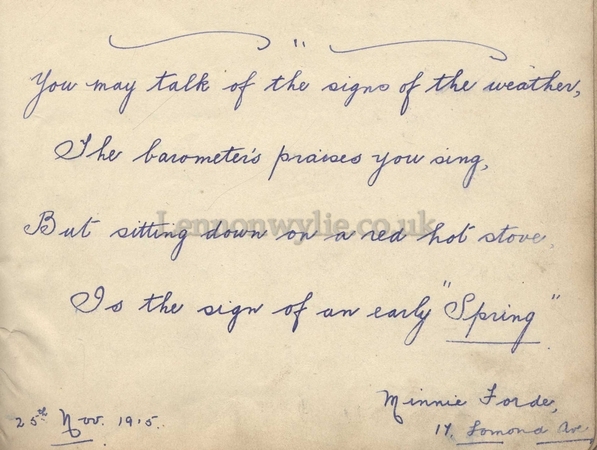 You may talk of the signs of the weather,
The barometer's praises you sing,
But sitting down on a red hot stove,
Is the sign of an early "Spring"
Minnie Forde,
25th Nov. 1915.
17. Lomond Ave
Lennonwylie.co.uk